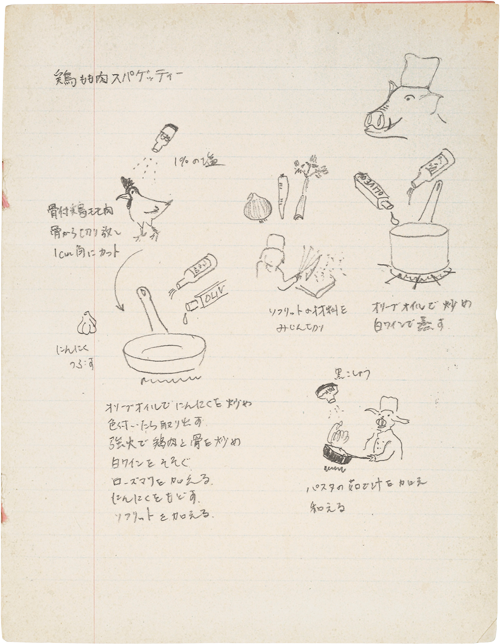 鶏もも肉スパゲッティー
1%の塩
骨付鶏もも肉
骨から切り放し
1cm角にカット
OLIV
にんにく
つぶす
オリーブオイルでにんにくを炒め
色付いたら取り出す
強火で鶏肉と骨を炒め
白ワインをそそぐ
ローズマリを加える
にんにくをもどす
ソフリットを加える
ソフリットの材料を
みじん切り
オリーブオイルで炒め
白ワインで蒸す
黒こしょう
パスタの茹で汁を加え
和える